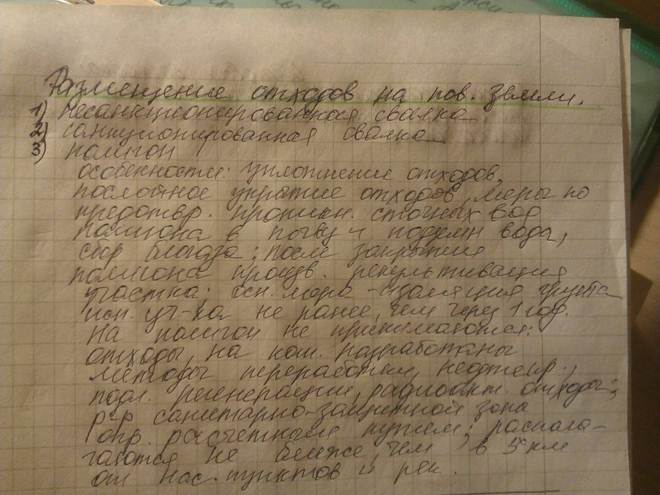 Размещение отходов на пов. земли.
1) несанкционированная свалка
2) санкционированная свалка
3) полигон
особенности: уплотнение отходов,
послойное укрытие отходов, меры по
предотвр. проникн. сточных вод
полигона в почву и подземн воды,
сбор ; после закрытия
полигона произв. рекультивация
участка: осн. мера - изоляция грунта
исп. уч-ка не ранее, чем через 1 год.
На полигон не принимаются:
отходы, на кот. разработаны
методы переработки,
подл. регенерации, радиоакт. отходы;
р-р санитарно-защитной зона
опр. расчетным путем; распола-
гаются не ближе, чем в 5 км
от нас. пунктов и рек.